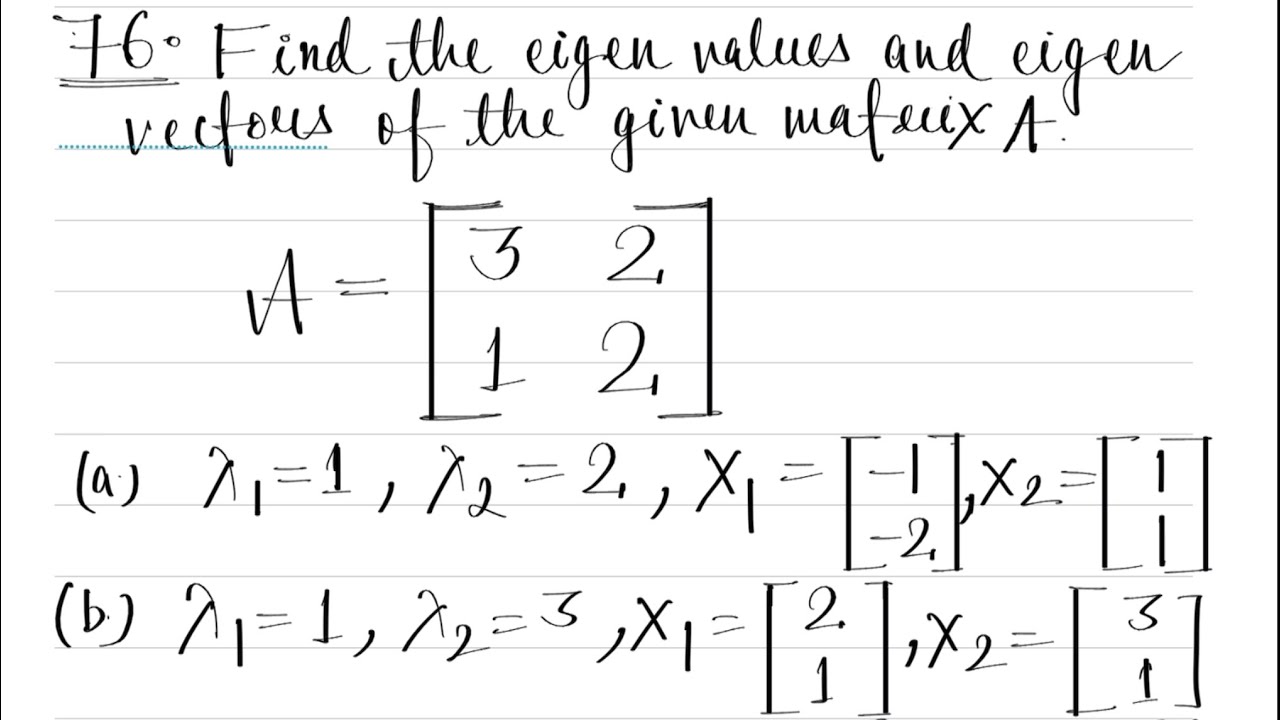 76. Find the eigen values and eigen
vectors of the given matrix A.
A = [3 2
1 2]
(a) λ₁ = 1, λ₂ = 2, X₁ = [-1 -2], X₂ = [1 1]
(b) λ₁ = 1, λ₂ = 3, X₁ = [2 1], X₂ = [3 1]